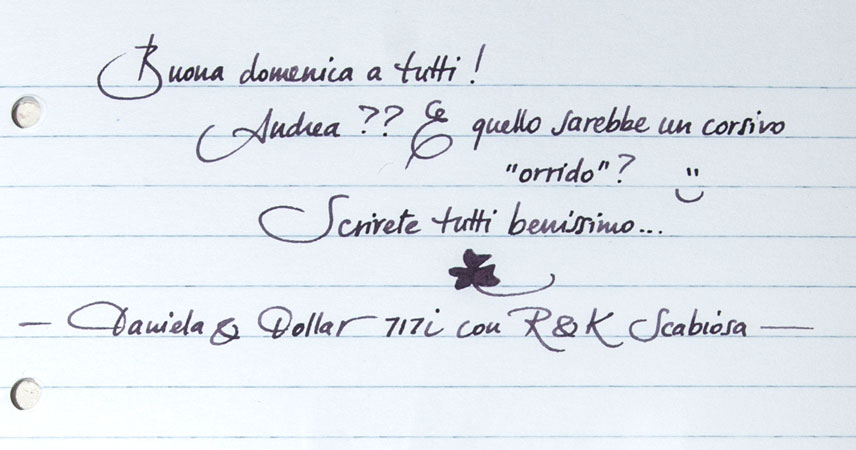 Buona domenica a tutti!
Andrea ?? E quello sarebbe un corsivo
"orrido"?
Scrivete tutti benissimo...
— Daniela & Dollar 717i con R&K Scabiosa —